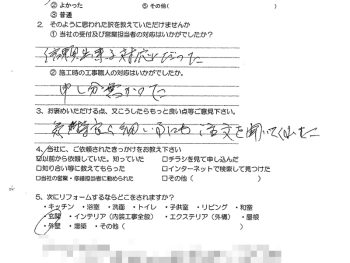 ② よかった ⑤ その他(
③ 普通
2. そのように思われた訳を教えていただけませんか
① 当社の受付及び営業担当者の対応はいかがでしたか?
信頼出来る対応だった
② 施工時の工事職人の対応はいかがでしたか?
申し分無かった
3. お褒めいただける点、又こうしたらもっと良い点等ご意見下さい。
細い所にも注文を聞いてくれた
4. 当社に、ご依頼されたきっかけをお教え下さい
☑以前から依頼していた。知っていた □チラシを見て申し込んだ
□知り合い等に教えてもらった □インターネットで検索して見つけた
□当社の営業・各種担当者に勧められた □その他( )
5. 次にリフォームするならどこをされますか?
・キッチン ・浴室 ・洗面 ・トイレ ・子供室 ・リビング ・和室
・玄関 ・インテリア(内装工事全般) ・エクステリア(外構) ・屋根
・外壁 ・増築 ・その他( )